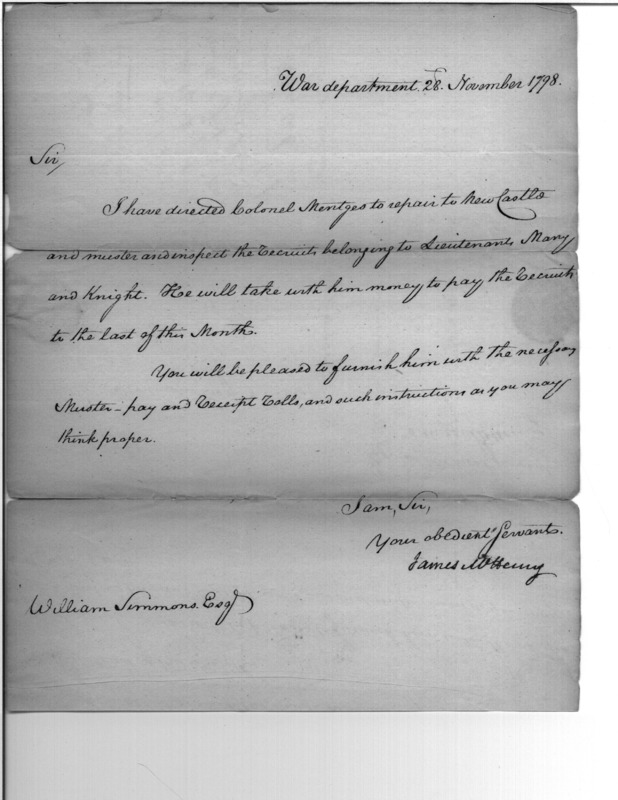 War department 28. November 1798.
Sir,
I have directed Colonel Mentges to repair to New Castle
and muster and inspect the Recruits belonging to Lieutenants Many
and Knight. He will take with him money to pay the Recruits
to the last of this Month.
You will be pleased to furnish him with the necessary
Muster-pay and Receipt Rolls, and such instructions as you may
think proper.
I am, Sir,
Your obedient Servant.
James McHenry
William Simmons. Esqr